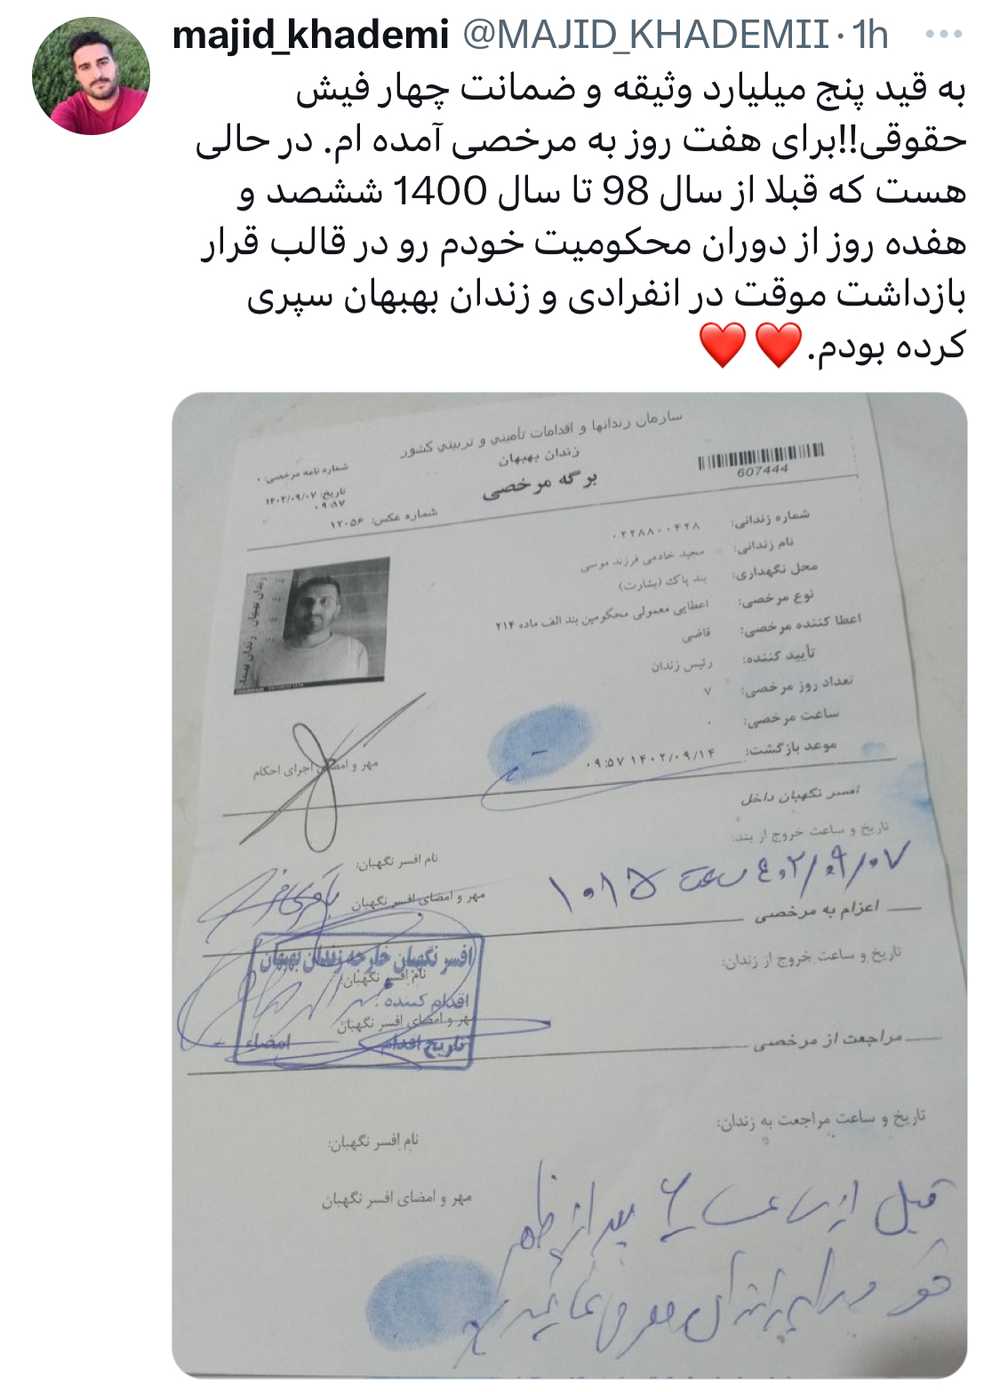 majid_khademi @MAJID_KHADEMII · 1h
به قید پنج میلیارد وثیقه و ضمانت چهار فیش
حقوقی!!برای هفت روز به مرخصی آمده ام. در حالی
هست که قبلا از سال 98 تا سال 1400 ششصد و
هفده روز از دوران محکومیت خودم رو در قالب قرار
بازداشت موقت در انفرادی و زندان بهبهان سپری
کرده بودم.❤️❤️
سازمان زندانها و اقدامات تأمینی و تربیتی کشور
زندان بهبهان
برگه مرخصی
607444
شماره نامه مرخصی: ۰
تاریخ: ۱۴۰۲/۰۹/۰۷
۰۹:۱۷
شماره عکس: ۱۲۰۵۶
شماره زندانی: ۰۲۲۸۸۰۰۴۲۸
نام زندانی: مجید خادمی فرزند موسی
محل نگهداری: بند پاک (بشارت)
نوع مرخصی: اعطایی معمولی محکومین بند الف ماده ۲۱۴
اعطا کننده مرخصی: قاضی
تأیید کننده: رئیس زندان
تعداد روز مرخصی: ۷
ساعت مرخصی: ۰
موعد بازگشت: ۱۴۰۲/۰۹/۱۴ ۰۹:۵۷
زندان بهبهان
مهر و امضای اجرای احکام
افسر نگهبان داخل
تاریخ و ساعت خروج از بند:
۴۰۲/۰۹/۰۷ ساعت ۱۰:۱۵
نام افسر نگهبان:
مهر و امضای افسر نگهبان
اعزام به مرخصی
تاریخ و ساعت خروج از زندان:
افسر نگهبان خارجه زندان بهبهان
نام افسر نگهبان:
اقدام کننده:
مهر و امضای افسر نگهبان
تاریخ اقدام امضاء
مراجعت از مرخصی
تاریخ و ساعت مراجعت به زندان:
نام افسر نگهبان:
مهر و امضای افسر نگهبان
قبل از ساعت ۶ بعد از ظهر
خود را به زندان معرفی نمایید